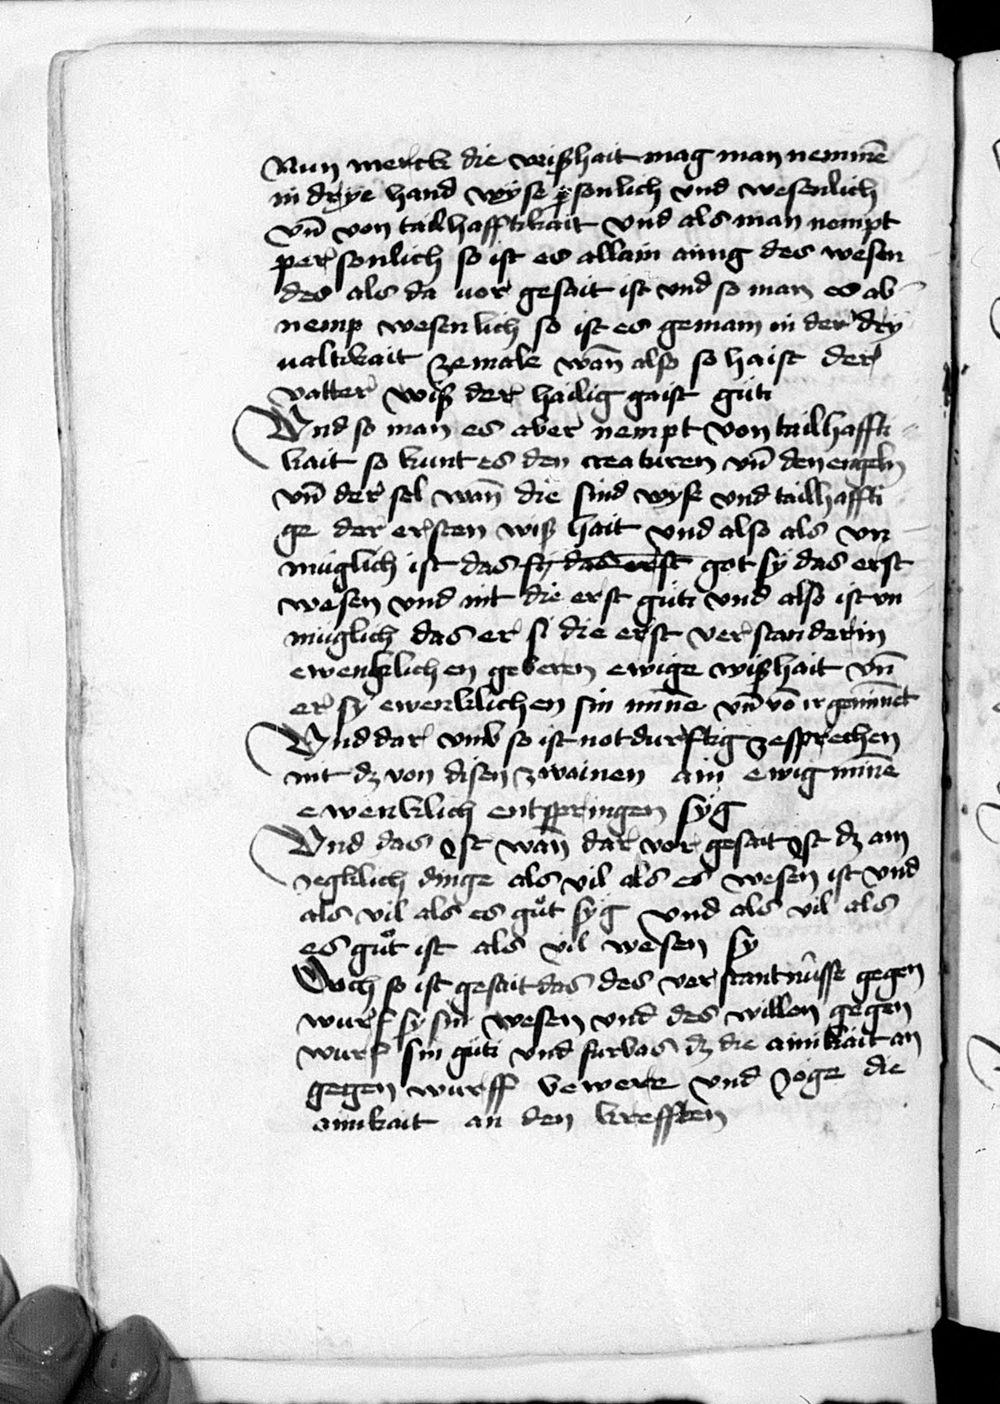 Nun merck die wißhait mag man nemmē
in drye hand wyse psonlich vnd wesenlich
vn̄ von tailhafftikait vnd als man nempt
personlich so ist es allain ainig des wesen
des als da uor gesait ist vnd so man es ab
nemp wesenlich so ist es gemain in der dry
ualtikait zemale wan̄ also so haist der
vatter wiß der hailig gaist güti
Vnd so man es aber nempt von tailhaffti
kait so kunt es den creaturen vn̄ den engeln
vn̄ der sel wan̄ die sind wyse vnd tailhaffti
ge der ersten wißhait vnd also als vn
müglich ist das si das erst got sy das erst
wesen vnd nit die erst güti vnd also ist vn
müglich das er si die erst verstanderin
ewenklichen geberen ewige wißhait vn̄
er sy ewenklichen sin minne vn̄ vō ir geminnet
Vnd dar vmb so ist notdurftig zesprechen
nit dz von disen zwainen ain ewig minne
ewenklich entspringen syg
Vnd das ist wan̄ dar vor gesait ist dz ain
iegklich dinge als vil als es wesen ist vnd
als vil als es gůt syg vnd als vil als
es gůt ist als vil wesen sy
Och so ist gesait das des verstantnüsse gegen
wurf sy sin wesen vnd des willen gegen
wurf sin güti vnd furbas dz die ainikait an
gegen wurff bewere vnd zöge die
ainikait an den krefften